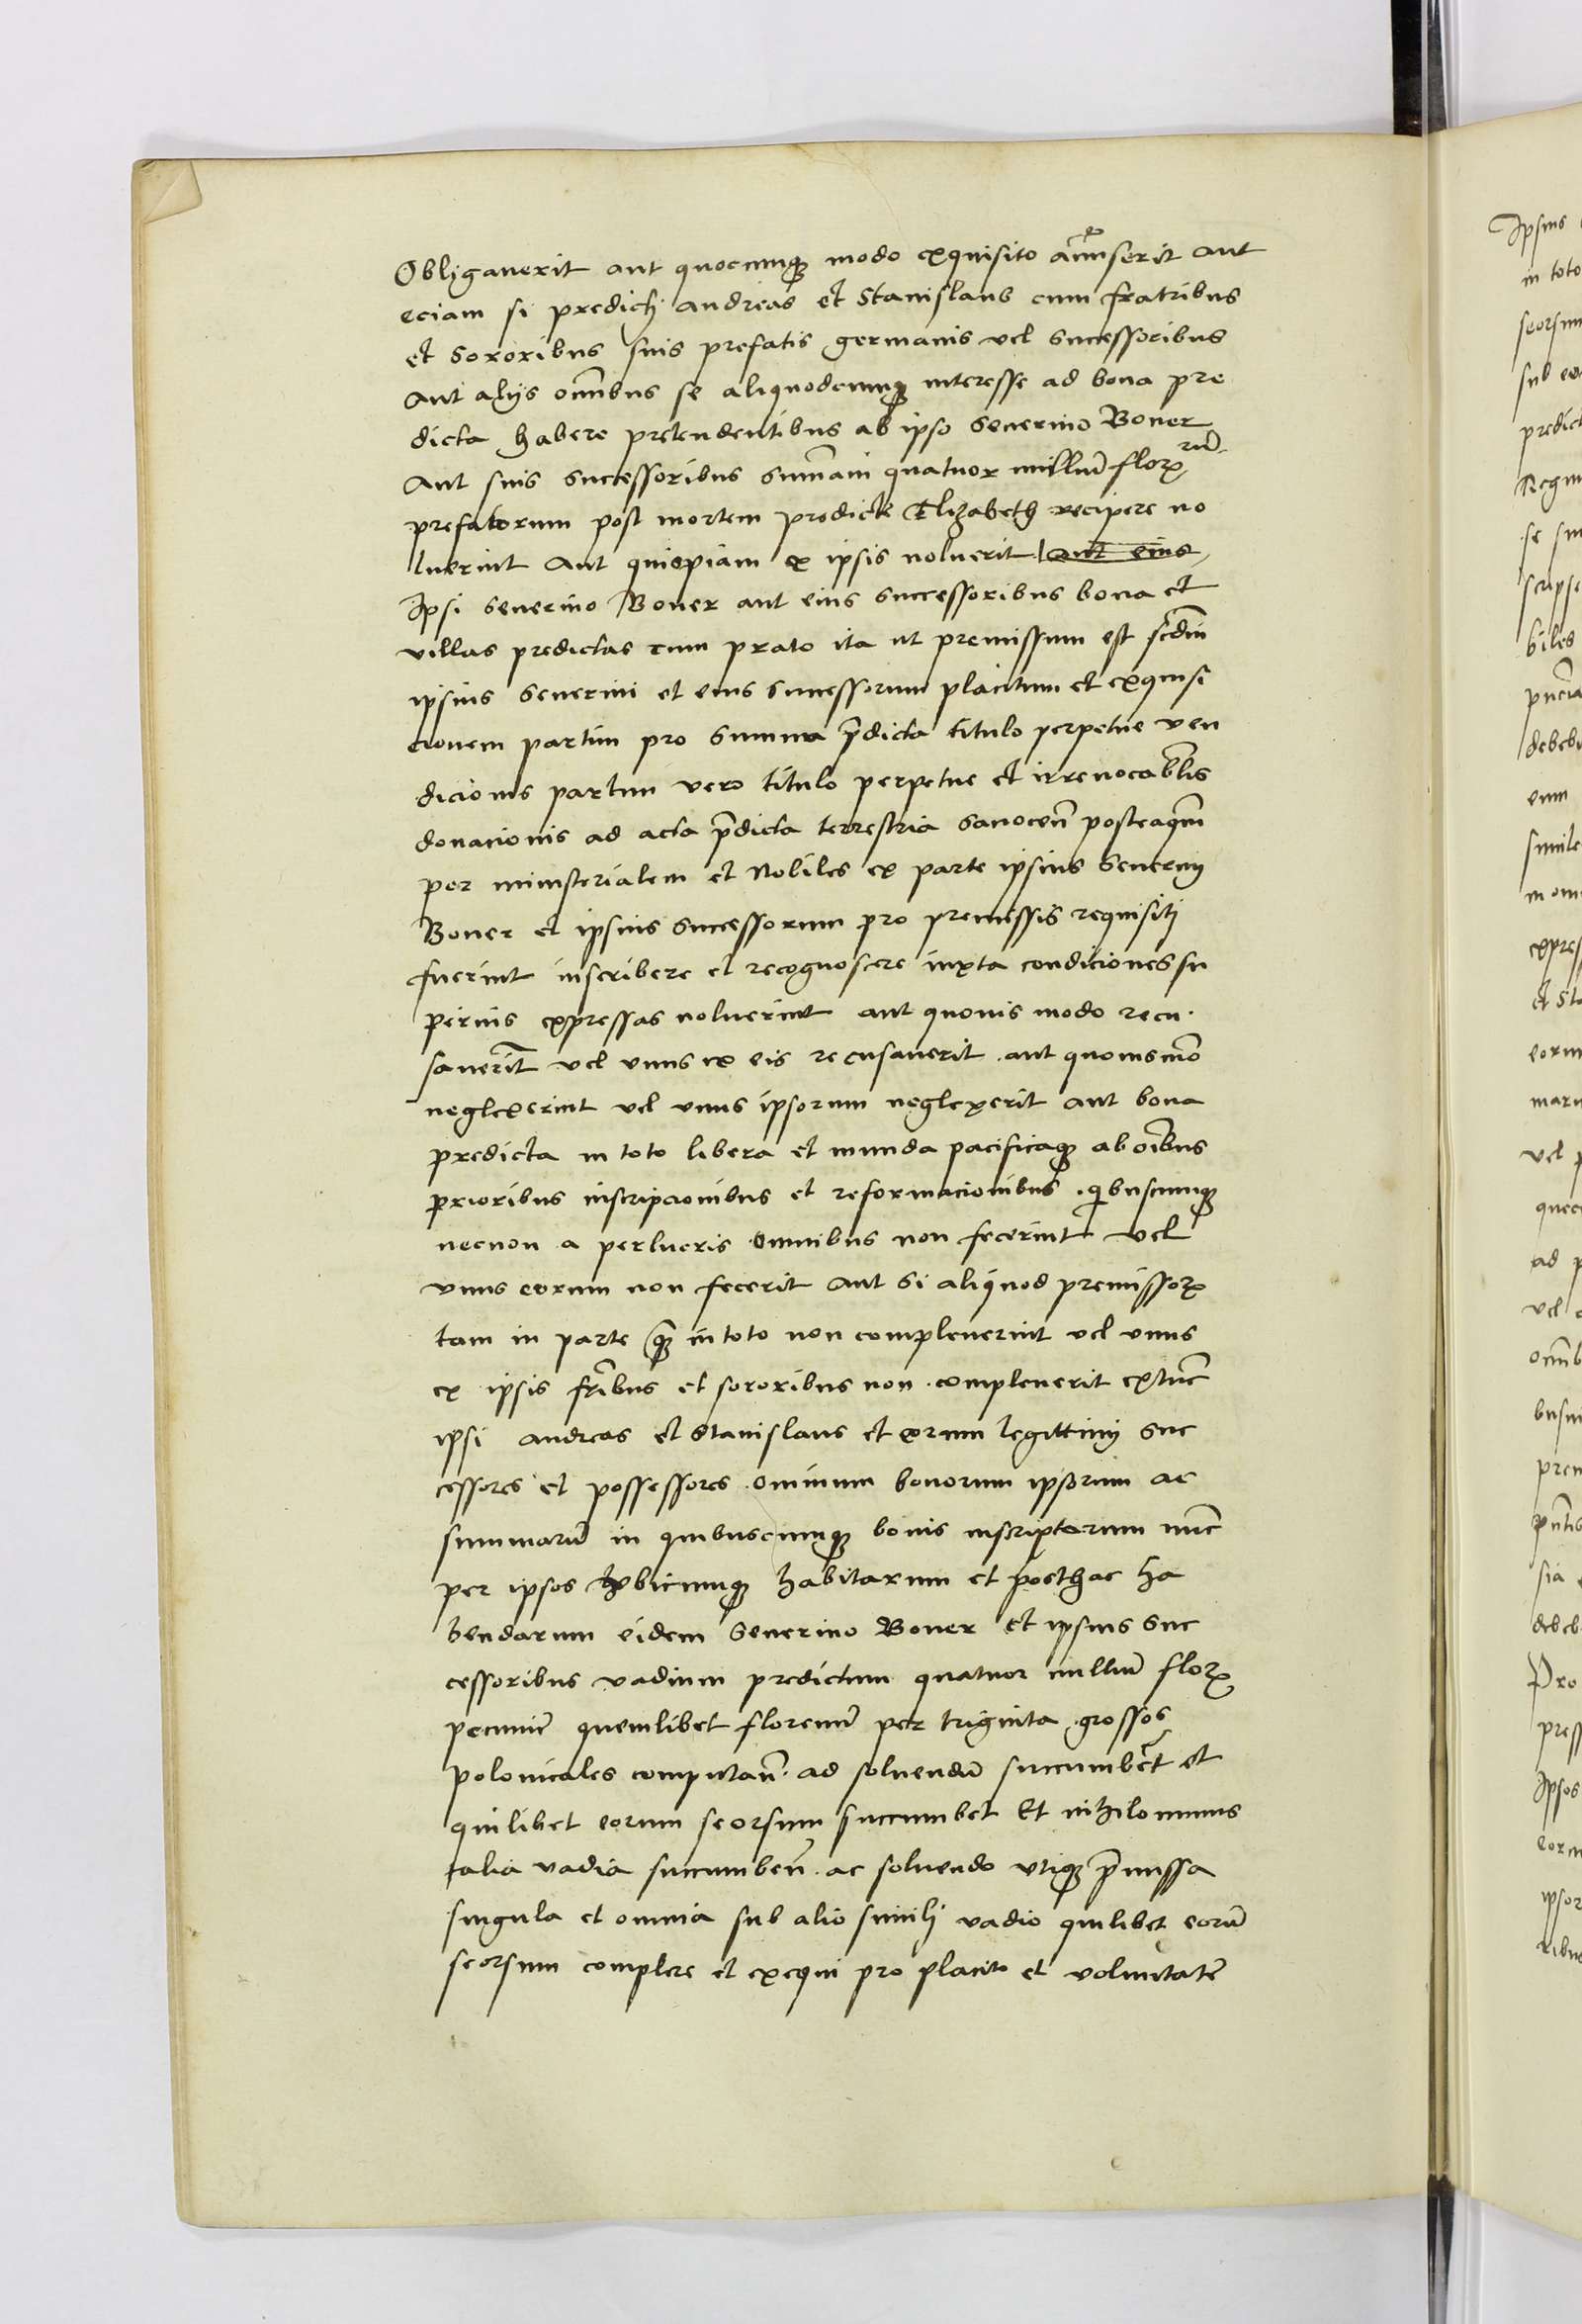 Obligaverit aut quocumque modo exquisito amiserit aut
eciam si predicti andreas et Stanislaus cum fratribus
et Sororibus suis prefatis germanis vel Successoribus
Aut alijs omnibus se aliquodcumque interesse ad bona pre
dicta habere pretendentibus ab ipso Severino Boner
Aut suis Successoribus Summam quatuor millium florenorum
prefatorum post mortem predicte Elizabeth recipere no
luerint Aut quispiam ex ipsis noluerit aut eius
Ipsi Severino Boner aut eius Successoribus bona et
villas predictas cum prato ita ut premissum est secundum
ipsius Severini et eius Successorum placitum et exquisi
cionem partim pro Summa predicta titulo perpetue ven
dicionis partim vero titulo perpetue et irrevocabilis
donacionis ad acta predicta terrestria Sanocen posteaquam
per ministerialem et Nobiles ex parte ipsius Severinj
Boner et ipsius Successorum pro premissis requisitj
fuerint inscribere et recognoscere iuxta condiciones su
perius expressas noluerint aut quovis modo recu
saverint vel unus ex eis recusaverit aut quovismodo
neglexerint vel unus ipsorum neglexerit aut bona
predicta in toto libera et munda pacificaque ab omnibus
prioribus inscripcionibus et reformacionibus quibuscumque
necnon a perlucris omnibus non fecerint vel
unus eorum non fecerit Aut Si aliquod premissorum
tam in parte quam in toto non compleverint vel unus
ex ipsis fratribus et sororibus non compleverit extunc
ipsi andreas et Stanislaus et eorum legittimj Suc
cessores et possessores omnium bonorum ipsorum ac
summarum in quibuscumque bonis inscriptorum nunc
per ipsos ubicumque habitarum et posthac ha
bendarum eidem Severino Boner et ipsius Suc
cessoribus vadium predictum quatuor millium florenorum
pecunie quemlibet florenum per triginta grossos
polonicales computan ad solvendum succumbent et
quilibet eorum seorsum succumbet Et nihilominus
talia vadia succumben ac solvendo utique premissa
singula et omnia sub alio similj vadio quilibet eorum
seorsum complere et exequi pro placito et voluntate